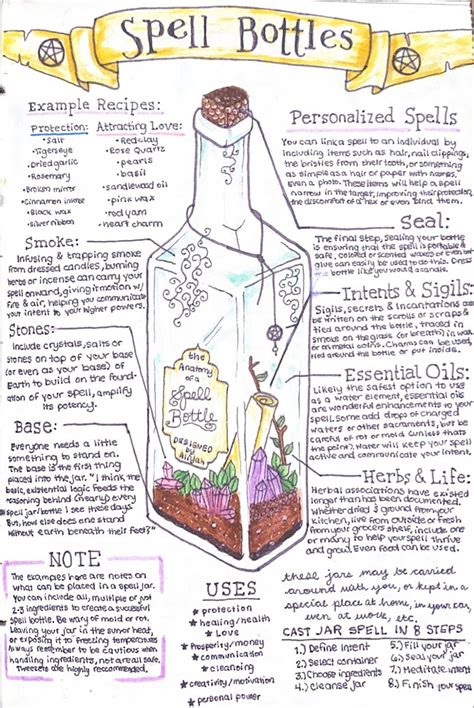 Spell Bottles
Example Recipes:
Protection:
•Salt
•Tigerseye
•Dried garlic
•Rosemary
•Broken mirror
•Cinnamon inner
•Black wax
•silver ribbon
Attracting Love:
•Red clay
•Rose Quartz
•pearls
•basil
•sandlewood oil
•pink wax
•red yarn
•heart charm
Smoke:
Infusing & trapping smoke
from dressed candles, burning
herbs or incense can carry your
spell onward, giving it motion w/
Fire & air, helping you communicate
your intent to your higher powers.
Stones:
Include crystals, salts or
stones on top of your base
(or even as your base) of
Earth to build on the foun-
ation of your spell, amplify
its potency.
Base:
Everyone needs a little
something to stand on.
The base is the first thing
placed into the jar. "I think me
basic, existential logic feeds the
reasoning behind (nearly) every
spell jar/bottle I see these days
But, how else does one stand
without earth beneath their feet?"
NOTE
The examples here are notes on
what can be placed in a spell jar.
You can include all, multiple or just
2-3 ingredients to create a successful
spell bottle. Be wary of mold or rot.
Leaving your jar in the sun or heat,
or exposing it to freezing temperatures
Always remember to be cautious when
handling ingredients, not are all safe.
Tweezers are highly recommended.
the
Anatomy
of a
Spell
Bottle
DESIGNED
BY
Aliyah
Personalized Spells
You can link a spell to an individual by
including items such as hair, nail clippings,
the bristles from their tooth, or something
as simple as a hair or paper with names.
Even a photo. These items will help a spell
narrow in the target, improving their protection,
the discomfort of a hex or even bind them.
Seal:
The final step, sealing your bottle
is ensuring that the spell is portable &
safe, colored or scented waxes or even
give can easily be used to do this. Dress
the bottle like you would a candle.
Intents & Sigils:
Sigils, secrets & incantations can
be written on the scrolls or scraps &
tied around the bottle, traced in
smoke on the glass (or breath) in wax
or animal oolins. Charms can be used,
tied around the bottle or put inside.
Essential Oils:
Likely the safest option to use
as a water element, essential oils
are wonderful enhancements to your
spell. Some add drops of charged
waters or other sacraments, but be
careful of rot or mold (unless thats
the point). Water will keep your spell
active and communicate your intent.
Herbs & Life:
Herbal associations have existed
longer than has been documented.
Whether dried & ground from your
kitchen, live from outside or fresh
from your grocers shelf, include one
or many to help your spell thrive and
grow! Even Food can be used.
USES
* protection
* healing/health
* Love
* Prosperity/money
* communication
* cleansing
* creativity/motivation
* personal power
these jars may be carried
around with you, or kept in a
special place at home, in your car,
even at work, etc.
CAST JAR SPELL IN 8 STEPS
1.) Define Intent
2.) Select container
3.) Choose ingredients
4.) Cleanse jar
5.) Fill your jar
6.) Seal your jar
7.) Meditate Intent
8.) Finish your spell